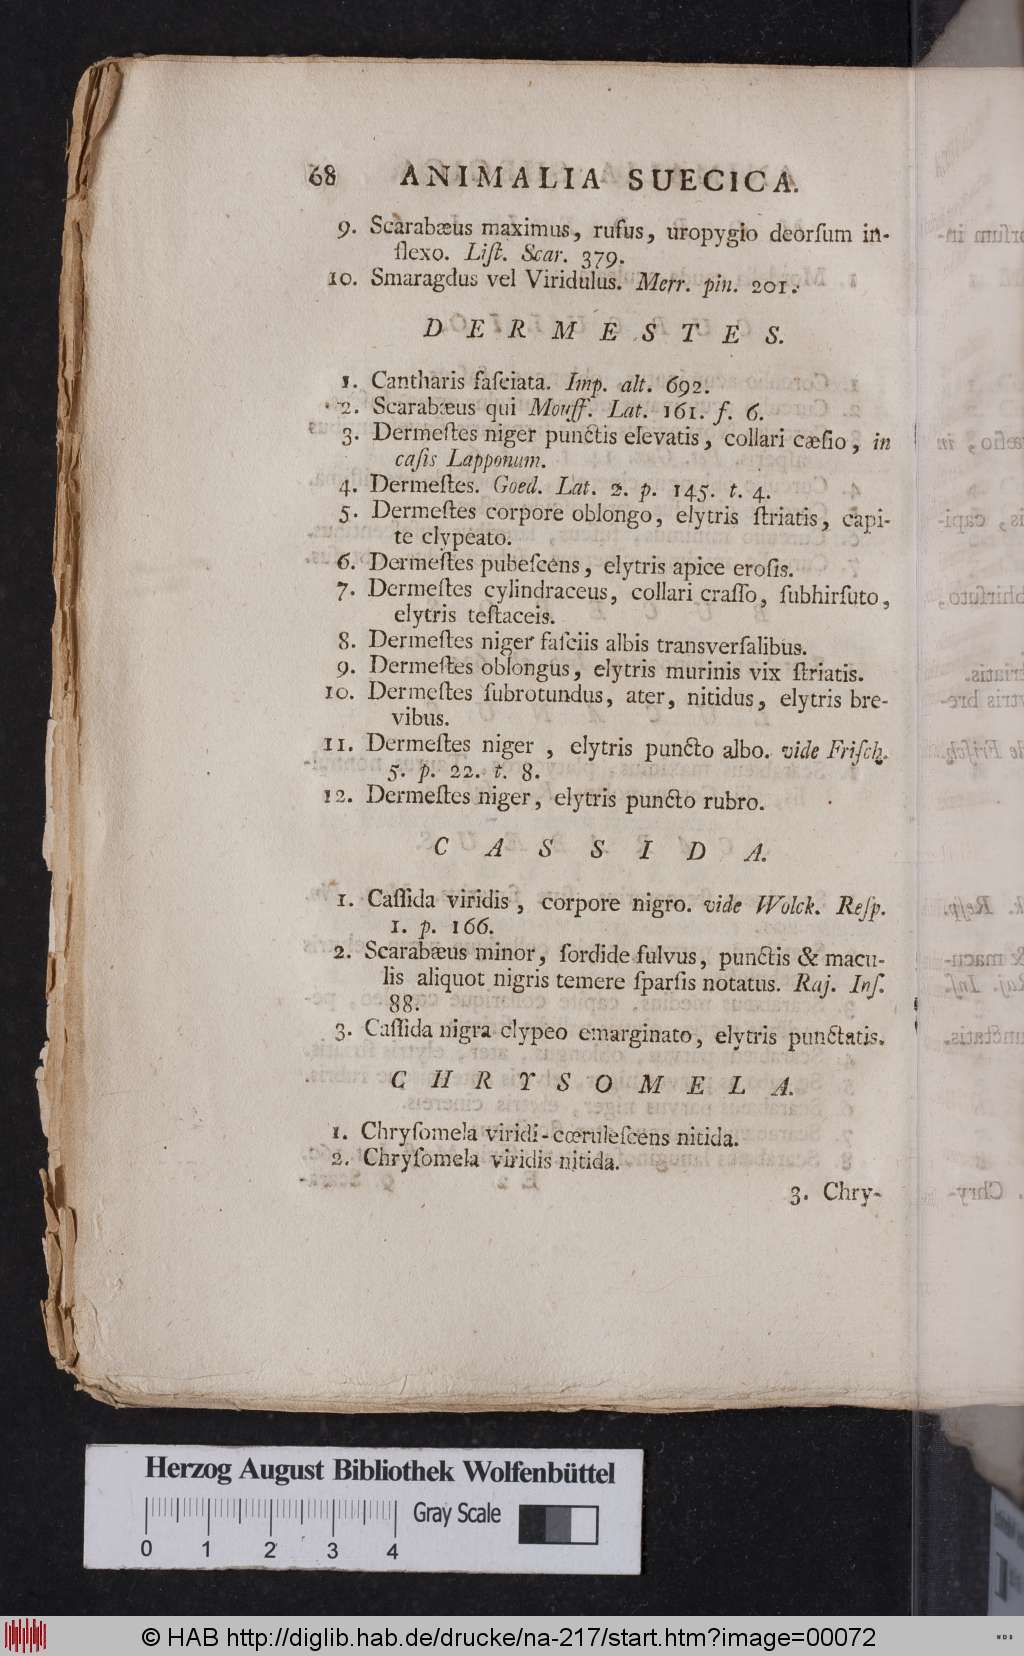 68 ANIMALIA SUECICA.
9. Scarabæus maximus, rufus, uropygio deorſum in-
flexo. Liſt. Scar. 379.
10. Smaragdus vel Viridulus. Merr. pin. 201.
DERMESTES.
1. Cantharis faſciata. Imp. alt. 692.
2. Scarabæus qui Mouff. Lat. 161. f. 6.
3. Dermeſtes niger punctis elevatis, collari cæſio, in
caſis Lapponum.
4. Dermeſtes. Goed. Lat. 2. p. 145. t. 4.
5. Dermeſtes corpore oblongo, elytris ſtriatis, capi-
te clypeato.
6. Dermeſtes pubeſcens, elytris apice eroſis.
7. Dermeſtes cylindraceus, collari craſſo, ſubhirſuto,
elytris teſtaceis.
8. Dermeſtes niger faſciis albis transverſalibus.
9. Dermeſtes oblongus, elytris murinis vix ſtriatis.
10. Dermeſtes ſubrotundus, ater, nitidus, elytris bre-
vibus.
11. Dermeſtes niger, elytris puncto albo. vide Friſch.
5. p. 22. t. 8.
12. Dermeſtes niger, elytris puncto rubro.
CASSIDA.
1. Caſſida viridis, corpore nigro. vide Wolck. Reſp.
1. p. 166.
2. Scarabæus minor, ſordide fulvus, punctis & macu-
lis aliquot nigris temere ſparſis notatus. Raj. Inſ.
88.
3. Caſſida nigra clypeo emarginato, elytris punctatis.
CHRYSOMELA.
1. Chryſomela viridi-cœruleſcens nitida.
2. Chryſomela viridis nitida.
3. Chry-
Herzog August Bibliothek Wolfenbüttel
Gray Scale
0 1 2 3 4
© HAB http://diglib.hab.de/drucke/na-217/start.htm?image=00072